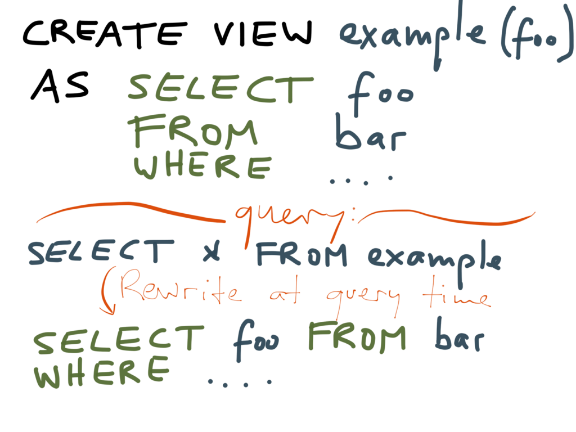 CREATE VIEW example (foo)
AS SELECT foo
FROM bar
WHERE ....
query:
SELECT * FROM example
Rewrite at query time
SELECT foo FROM bar
WHERE ....